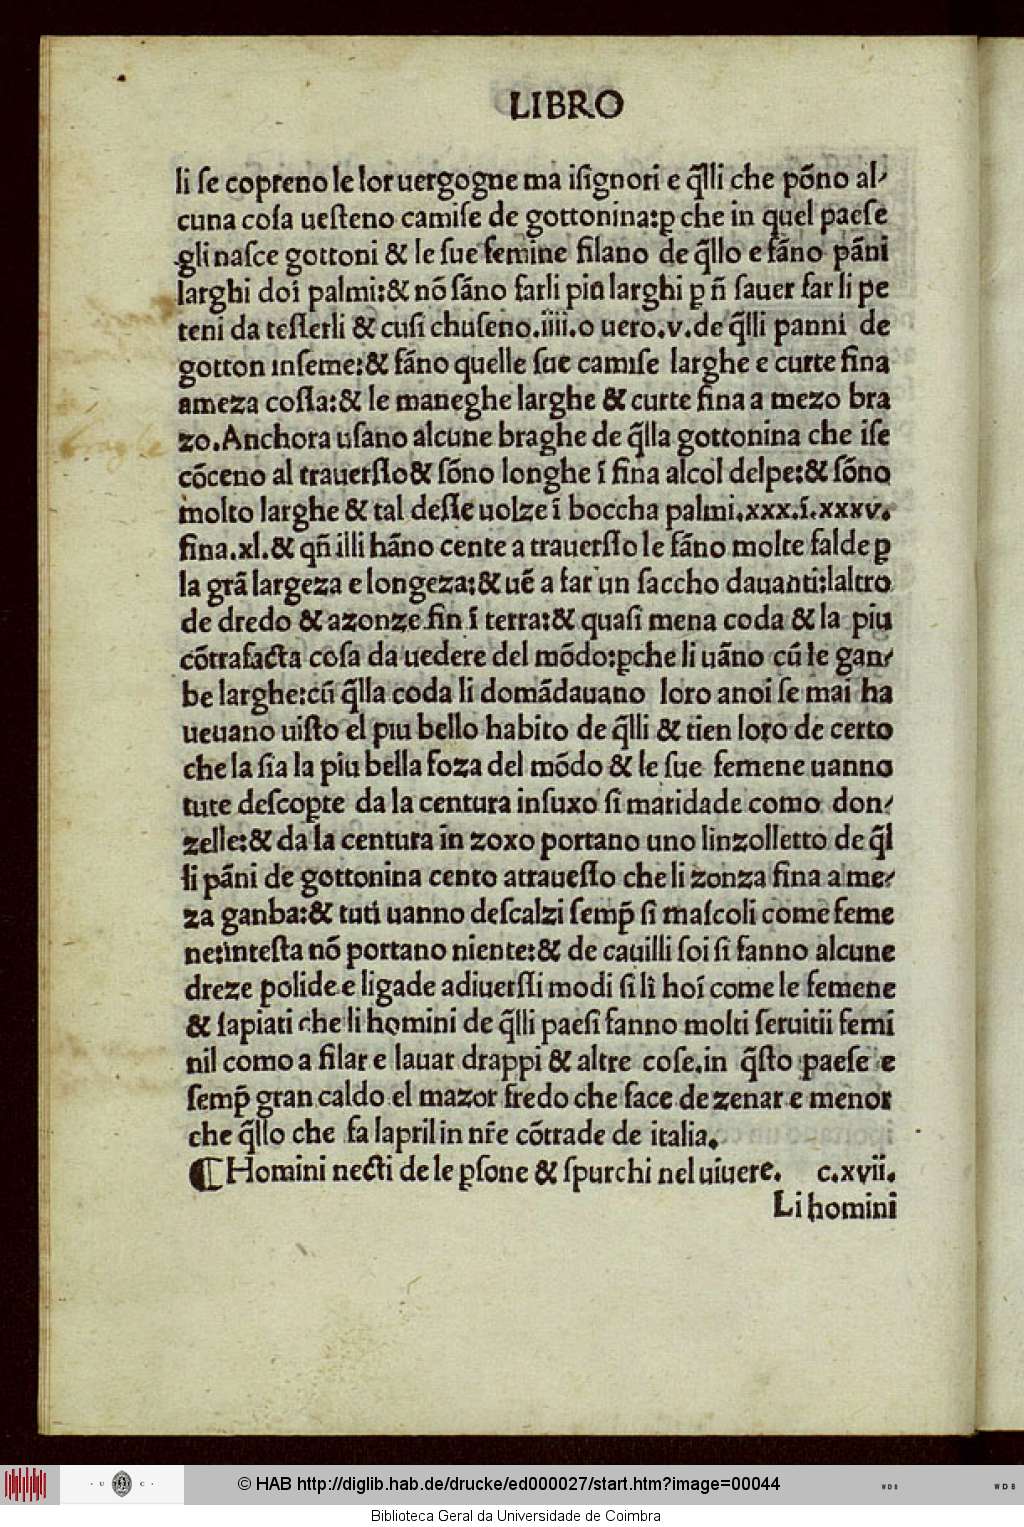 LIBRO
li se copreno le lor uergogne ma isignori e q̃lli che põno al-
cuna cosa uesteno camise de gottonina:ꝑ che in quel paese
gli nasce gottoni & le sue femine filano de q̃llo e fãno pãni
larghi doi palmi:& nõ sãno farli piu larghi ꝑ ñ sauer far li pe
teni da testerli & cusi chuseno.iiii.o uero.v.de q̃lli panni de
gotton inseme:& fãno quelle sue camise larghe e curte fina
ameza costa:& le maneghe larghe & curte fina a mezo bra
zo.Anchora usano alcune braghe de q̃lla gottonina che ise
cõceno al trauersto& sõno longhe ĩ fina alcol delpe:& sõno
molto larghe & tal deste uolze ĩ boccha palmi.xxx.ĩ.xxxv.
fina.xl.& qñ illi hãno cente a trauersto le fãno molte falde ꝑ
la grã largeza e longeza:& uẽ a far un saccho dauanti:laltro
de dredo & azonze fin ĩ terra:& quasi mena coda & la piu
cõtrafacta cosa da uedere del mõdo:ꝑche li uãno cũ le gan-
be larghe:cũ q̃lla coda li domãdauano loro anoi se mai ha
ueuano uisto el piu bello habito de q̃lli & tien loro de certo
che la sia la piu bella foza del mõdo & le sue femene uanno
tute descoꝑte da la centura insuxo si maridade como don-
zelle:& da la centura in zoxo portano uno linzolletto de q̃l
li pãni de gottonina cento atrauesto che li zonza fina a me-
za ganba:& tuti uanno descalzi semp̃ si mascoli come feme
ne:intesta nõ portano niente:& de cauilli soi si fanno alcune
dreze polide e ligade adiuersti modi si li hoĩ come le femene
& sapiati che li homini de q̃lli paesi fanno molti seruitii femi
nil como a filar e lauar drappi & altre cose.in q̃sto paese e
semp̃ gran caldo el mazor fredo che face de zenar e menor
che q̃llo che fa lapril in nr̃e cõtrade de italia.
¶Homini necti de le ꝑsone & spurchi nel uiuere. c.xvii.
Li homini
© HAB http://diglib.hab.de/drucke/ed000027/start.htm?image=00044
Biblioteca Geral da Universidade de Coimbra